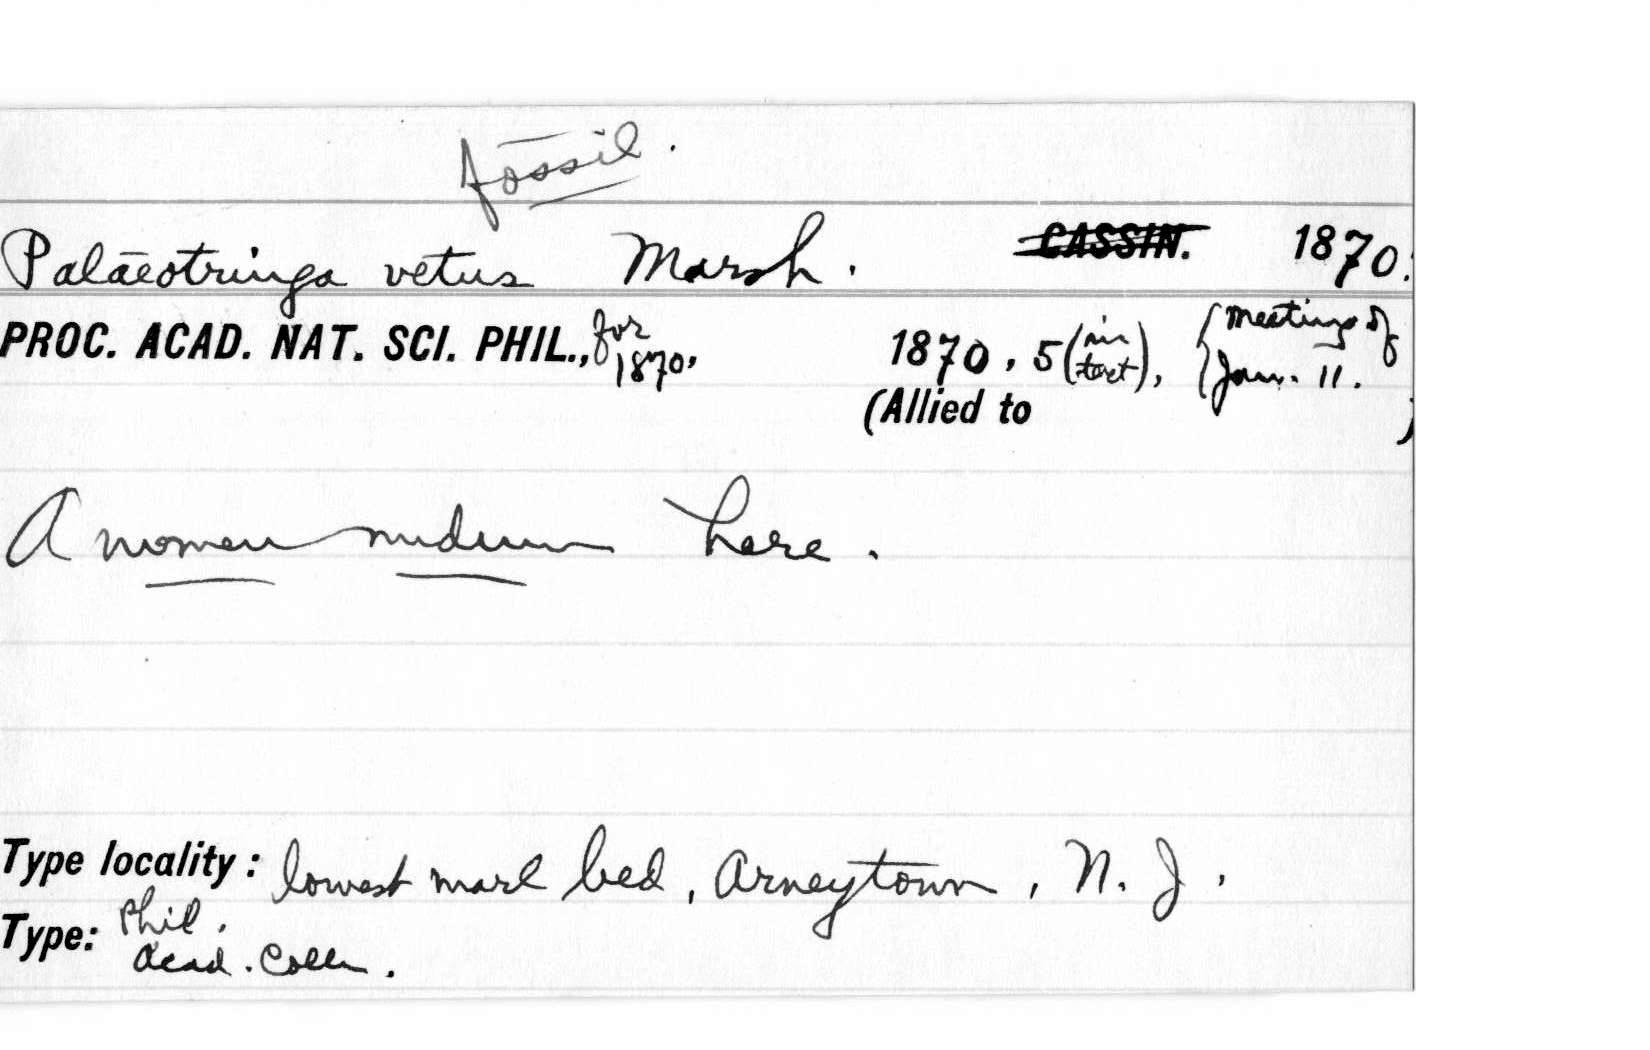 fossil.
Palaeotringa vetus Marsh. CASSIN. 1870.
PROC. ACAD. NAT. SCI. PHIL., for 1870, 1870, 5 (in text), {Meeting of Jan. 11.
(Allied to )
A nomen nudum here.
Type locality: lowest marl bed, Arneytown, N. J.
Type: Phil.
Acad. Colln.